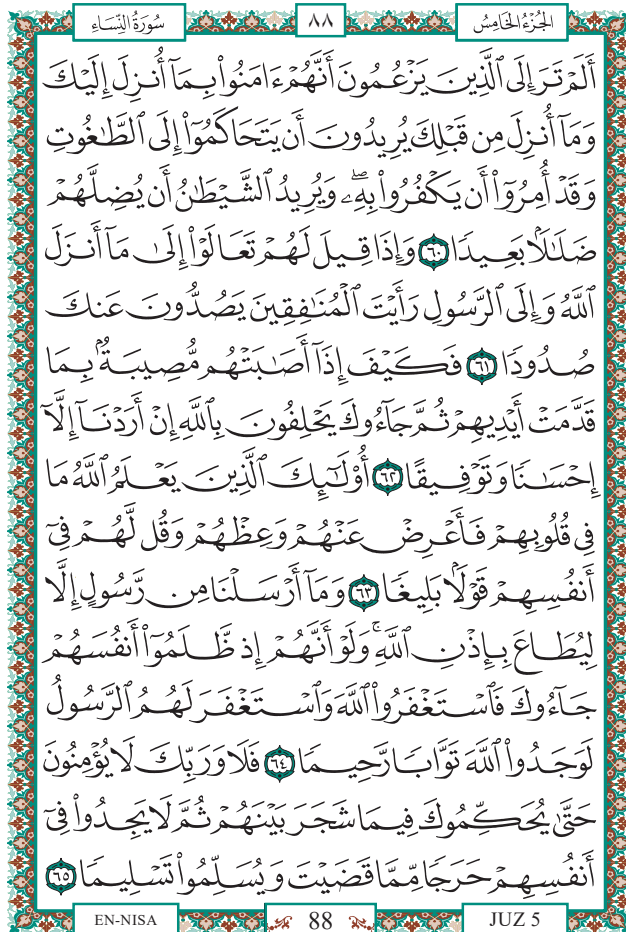 سُورَةُ النِّسَاءِ ٨٨ الجُزْءُ الخَامِسُ
أَلَمْ تَرَ إِلَى ٱلَّذِينَ يَزْعُمُونَ أَنَّهُمْ ءَامَنُوا۟ بِمَآ أُنزِلَ إِلَيْكَ
وَمَآ أُنزِلَ مِن قَبْلِكَ يُرِيدُونَ أَن يَتَحَاكَمُوٓا۟ إِلَى ٱلطَّٰغُوتِ
وَقَدْ أُمِرُوٓا۟ أَن يَكْفُرُوا۟ بِهِۦۖ وَيُرِيدُ ٱلشَّيْطَٰنُ أَن يُضِلَّهُمْ
ضَلَٰلًۢا بَعِيدًا ٦٠ وَإِذَا قِيلَ لَهُمْ تَعَالَوْا۟ إِلَىٰ مَآ أَنزَلَ
ٱللَّهُ وَإِلَى ٱلرَّسُولِ رَأَيْتَ ٱلْمُنَٰفِقِينَ يَصُدُّونَ عَنكَ
صُدُودًا ٦١ فَكَيْفَ إِذَآ أَصَٰبَتْهُم مُّصِيبَةٌۢ بِمَا
قَدَّمَتْ أَيْدِيهِمْ ثُمَّ جَآءُوكَ يَحْلِفُونَ بِٱللَّهِ إِنْ أَرَدْنَآ إِلَّآ
إِحْسَٰنًا وَتَوْفِيقًا ٦٢ أُو۟لَٰٓئِكَ ٱلَّذِينَ يَعْلَمُ ٱللَّهُ مَا
فِى قُلُوبِهِمْ فَأَعْرِضْ عَنْهُمْ وَعِظْهُمْ وَقُل لَّهُمْ فِىٓ
أَنفُسِهِمْ قَوْلًۢا بَلِيغًا ٦٣ وَمَآ أَرْسَلْنَا مِن رَّسُولٍ إِلَّا
لِيُطَاعَ بِإِذْنِ ٱللَّهِۚ وَلَوْ أَنَّهُمْ إِذ ظَّلَمُوٓا۟ أَنفُسَهُمْ
جَآءُوكَ فَٱسْتَغْفَرُوا۟ ٱللَّهَ وَٱسْتَغْفَرَ لَهُمُ ٱلرَّسُولُ
لَوَجَدُوا۟ ٱللَّهَ تَوَّابًا رَّحِيمًا ٦٤ فَلَا وَرَبِّكَ لَا يُؤْمِنُونَ
حَتَّىٰ يُحَكِّمُوكَ فِيمَا شَجَرَ بَيْنَهُمْ ثُمَّ لَا يَجِدُوا۟ فِىٓ
أَنفُسِهِمْ حَرَجًا مِّمَّا قَضَيْتَ وَيُسَلِّمُوا۟ تَسْلِيمًا ٦٥
EN-NISA 88 JUZ 5